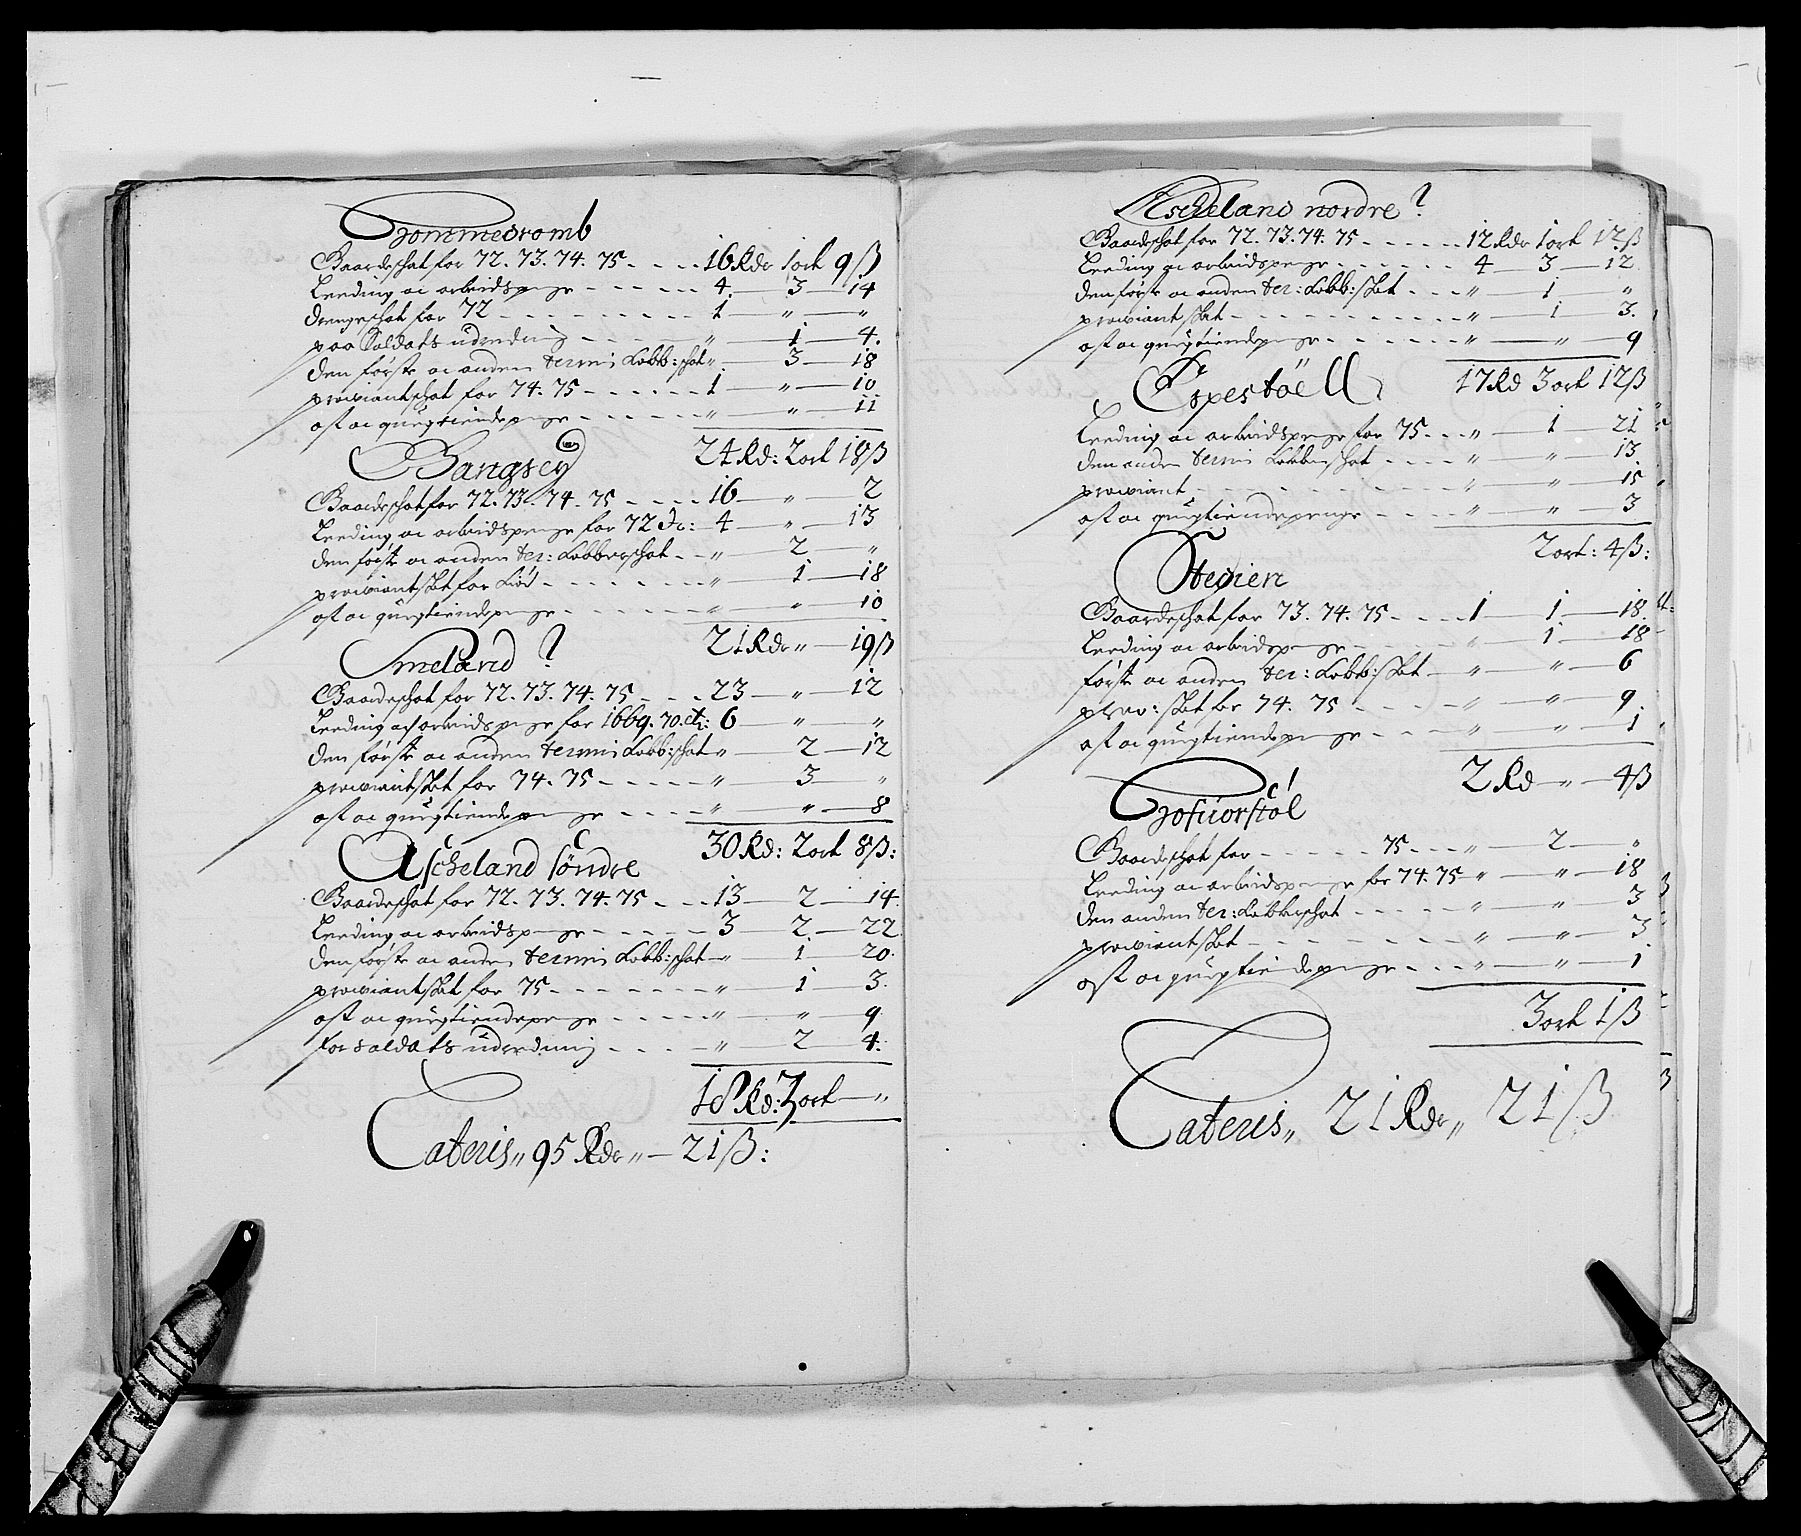 Gommedromb
Gaardeschat for 72. 73. 74. 75 - - - - 16 Rdr 1 ort 9 ß
Leeding oc arbeidspenge - - - - - - 4 — 3 — 14
drengeschat for 72 - - - - - - - - - 1 — " — "
paa Soldats udreding - - - - - - " — 1 — 4.
den første oc anden termi Kobb:schat " — 3 — 18
proviantschat for 74. 75 - - - - - - 1 — " — 10
ost oc qvegtiendepenge - - - - - - " — " — 11
24 Rd: 2 ort 18 ß
Bangsey
Gaardeschat for 72. 73. 74. 75 - - - - - 16 — " — 2
Leeding oc arbeidspenge for 72 &c: 4 — " — 13
den første oc anden ter: Kobberschat - - " — 2 — "
proviantskat for - - - - - - - " — 1 — 18
ost oc qvegtiendepenge - - - - - - " — " — 10
21 Rdr " — 19 ß
Smeland
Gaardeschat for 72. 73. 74. 75 - - - - 23 — " — 12
Leeding oc arbeidspenge for 1669. 70. etc: 6 — " — "
den første oc anden termi Kobb:schat " — 2 — 12
proviantskat for 74. 75 - - - - - - " — 3 — "
ost oc qvegtiendepenge - - - - " — " — 8
30 Rd: 2 ort 8 ß:
Ascheland söndre
Gaardeschat for 72. 73. 74. 75 - - - 13 — 2 — 14.
Leeding oc arbeidspenge - - - - - - 3 — 2 — 22
den første oc anden termi Kobb:schat - " — 1 — 20.
proviantskat for 75 - - - - - - - - " — 1 — 3.
ost oc qvegtiendepenge - - - - - " — " — 9
for soldats udredning - - - - " — 2 — 4.
18 Rd: 3 ort — "
Lateris " 95 Rdr " — 21 ß:
Ascheland nordre
Gaardeschat for 72. 73. 74. 75 - - - - - - 12 Rdr 1 ort 12 ß
Leeding oc arbeidspenge - - - - - - - 4 — 3 — 12
den første oc anden ter: Kobb:skat - - - " — 1 — "
proviantskat - - - - - - - - - - - " — 1 — 3.
ost oc qvegtiendepenge - - - - - - " — " — 9
17 Rd 3 ort 12 ß
Espestöell
Leeding oc arbeidspenge for 75 - - - " — 1 — 21
den anden termi Kobberschat - - - - " — " — 13.
proviant - - - - - - - - - - " — " — 15
ost oc qvegtiendepenge - - - - " — " — 3
2 ort: 4 ß:
Stedien
Gaardeschat for 73. 74. 75 - - - - 1 — 1 — 18.
Leeding oc arbeidspenge - - - - - " — 1 — 18
første oc anden ter: Kobb:skat - " — " — 6
prov: skat for 74. 75 - - - - - " — " — 9.
ost oc qvegtiendepenge - - - - " — " — 1
2 Rd — " — 4 ß
Gofuorstöl
Gaardeschat for - - - - - - 75 - - - " — 2 — "
Leeding oc arbeidspenge for 74. 75 " — " — 18
den anden ter: Kobberschat - - - - - " — " — 3
proviantskat - - - - - - - - - " — " — 3.
ost oc qvegtiendepenge - - - - " — " — 1
3 ort 1 ß
Lateris " 21 Rdr " 21 ß